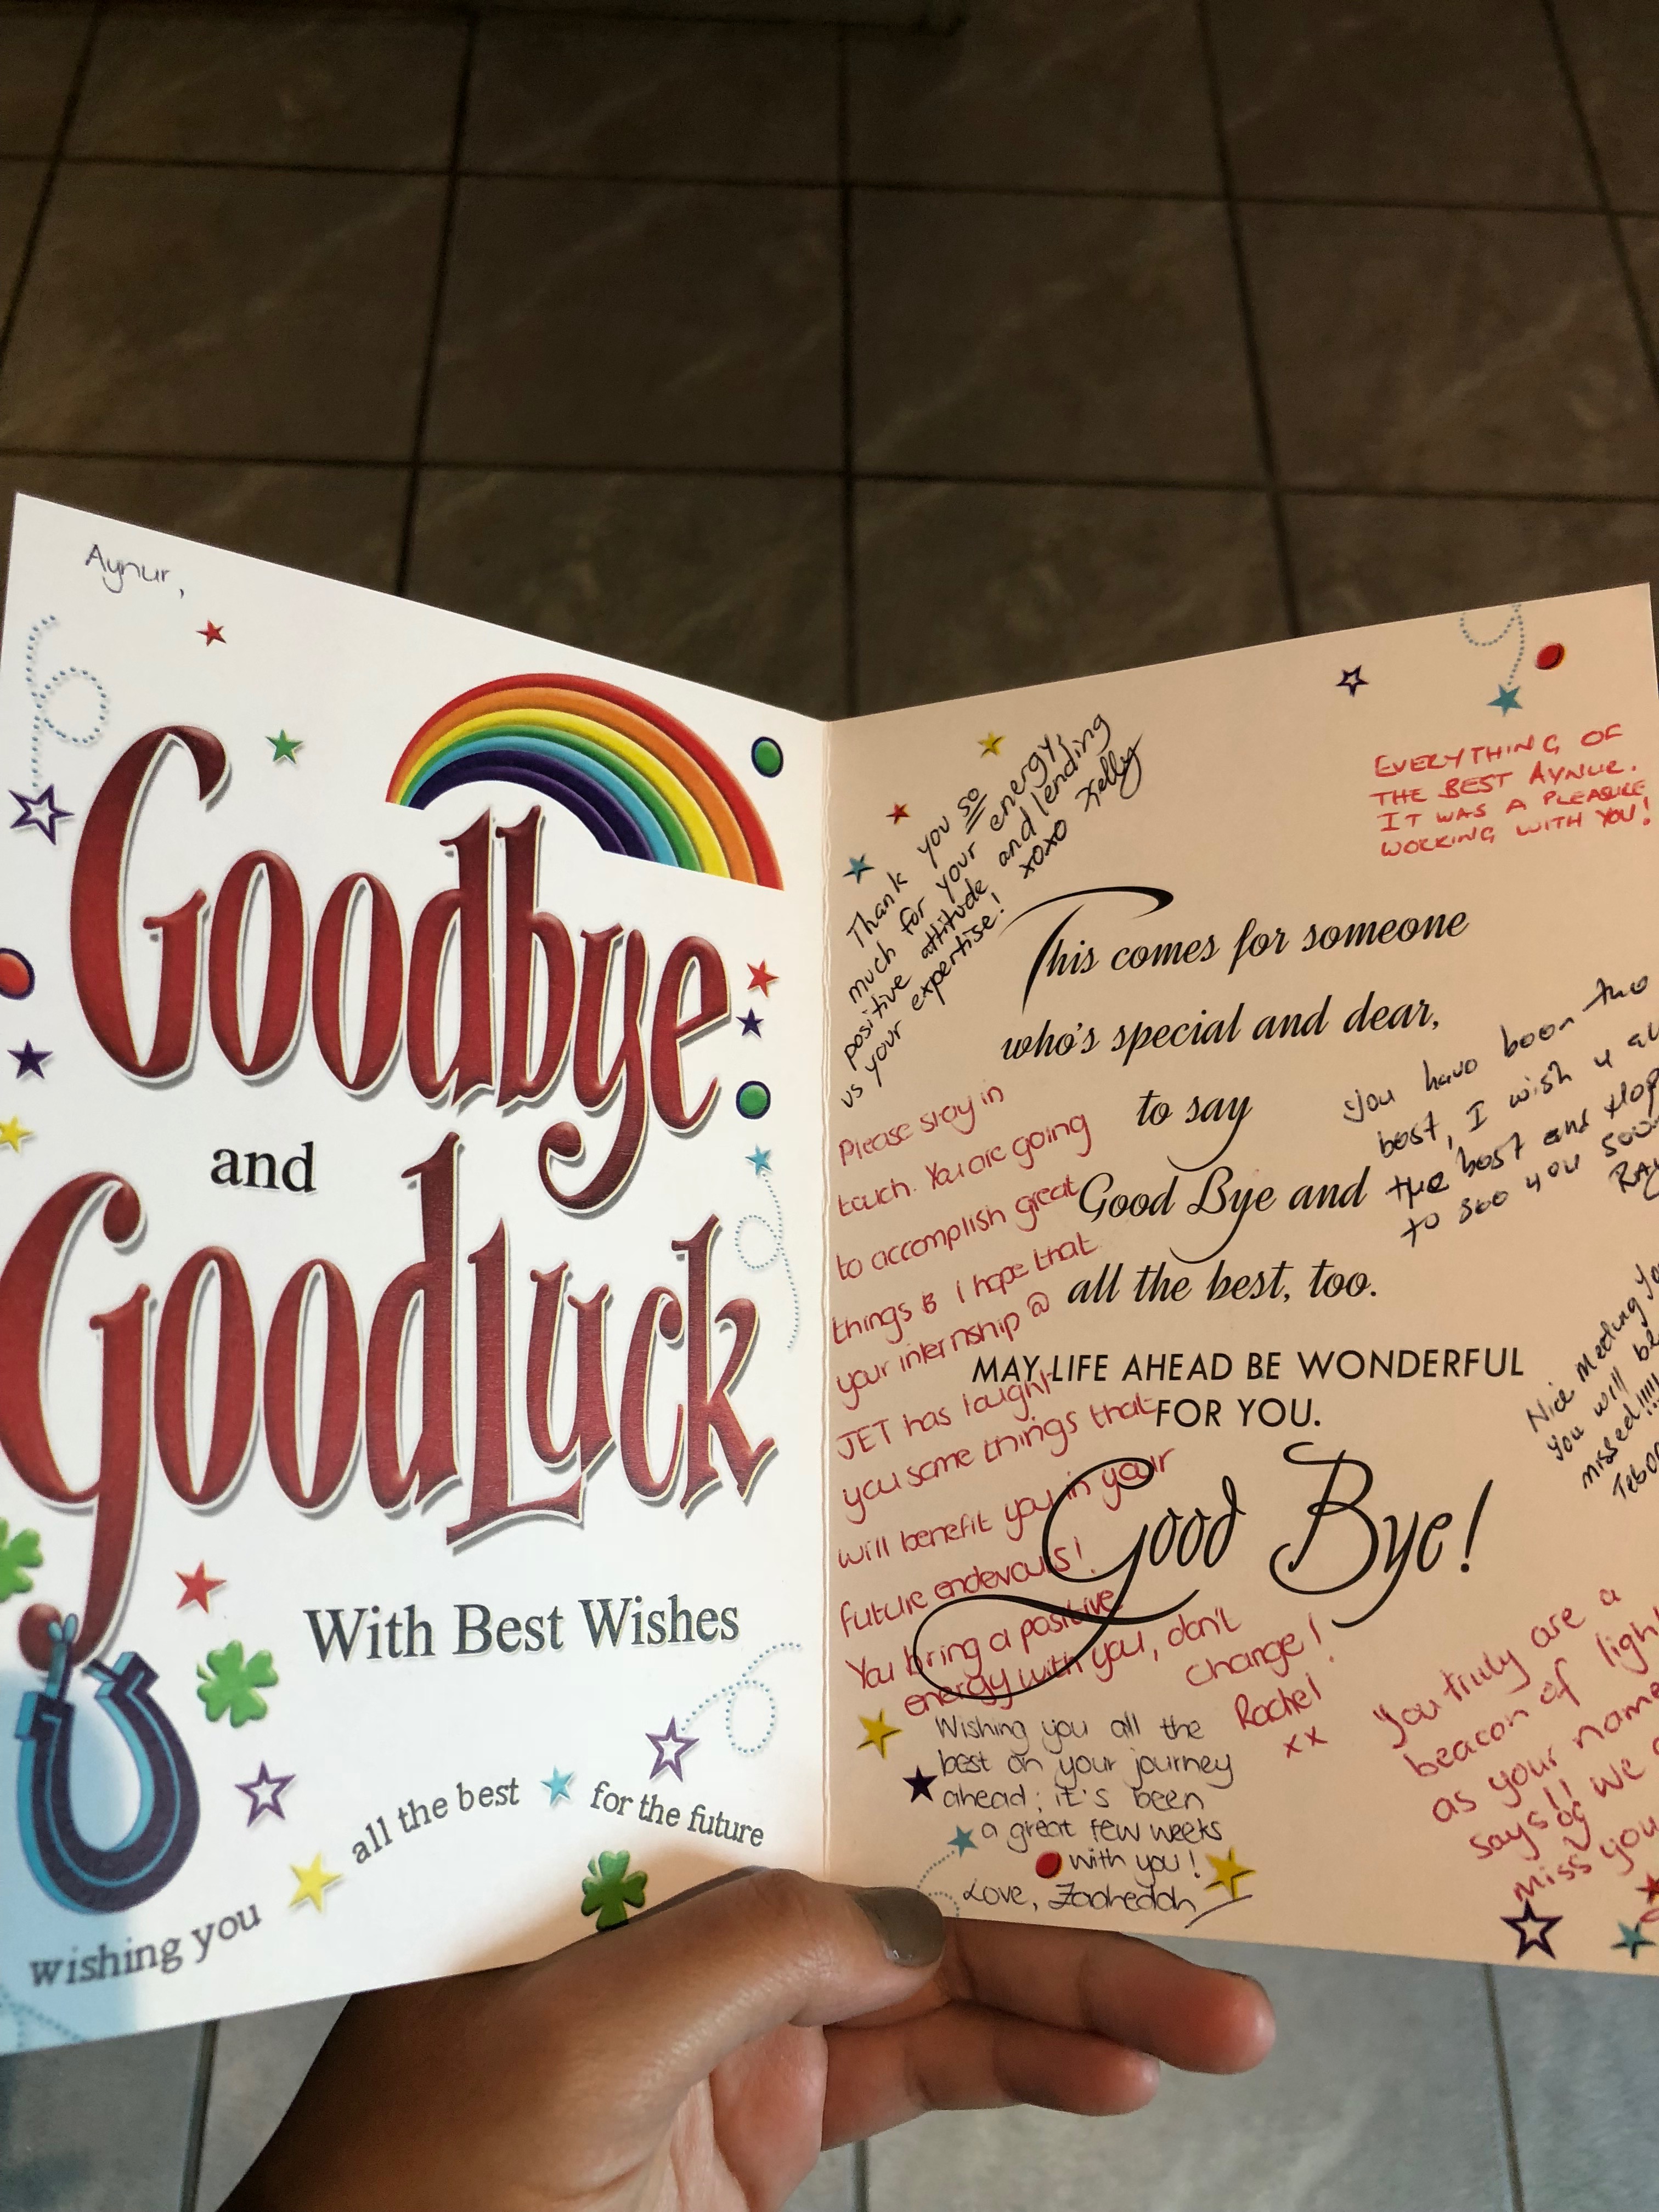 Aynur,
Goodbye
and
Good Luck
With Best Wishes
wishing you all the best for the future
Thank you so
much for your energy,
positive attitude and lending
us your expertise! xoxo Kelly
EVERYTHING OF
THE BEST AYNUR.
IT WAS A PLEASURE
WORKING WITH YOU!
This comes for someone
who's special and dear,
to say
Good Bye and
all the best, too.
MAY LIFE AHEAD BE WONDERFUL
FOR YOU.
Good Bye!
You have been the
best, I wish u
the best and
to see you
Please stay in
touch. You are going
to accomplish great
things & I hope that
your internship @
JET has taught
you some things that
will benefit you in your
future endevours!
You bring a positive
energy with you, don't
change!
Rachel
xx
Nice meeting
you will
missed!!!!
Wishing you all the
best on your journey
ahead; it's been
a great few weeks
with you!
Love, Zaaheddah
You truly are a
beacon of
as your name
says!! We
miss you